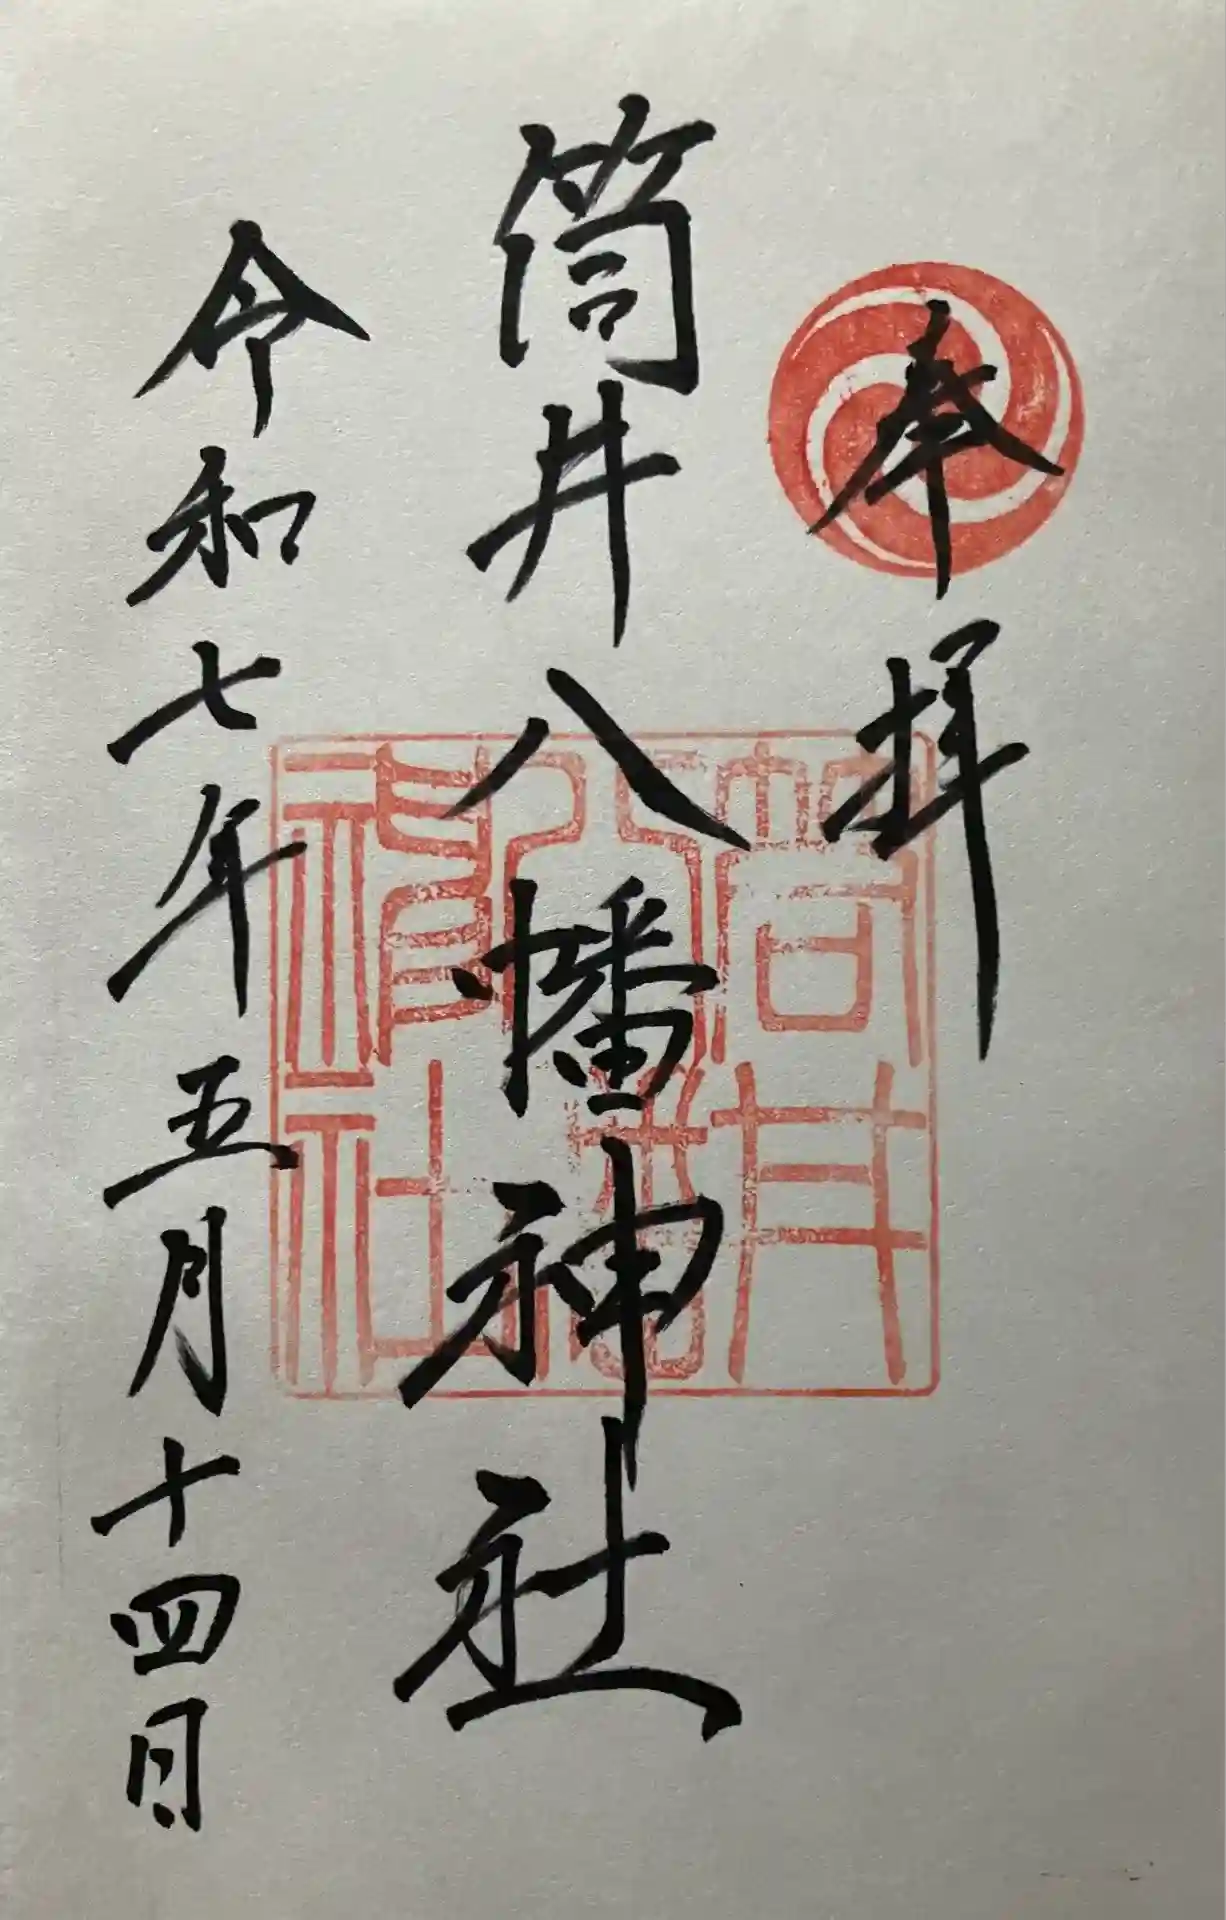 奉拝
筒井八幡神社
令和七年五月十四日
筒井
八幡
神社